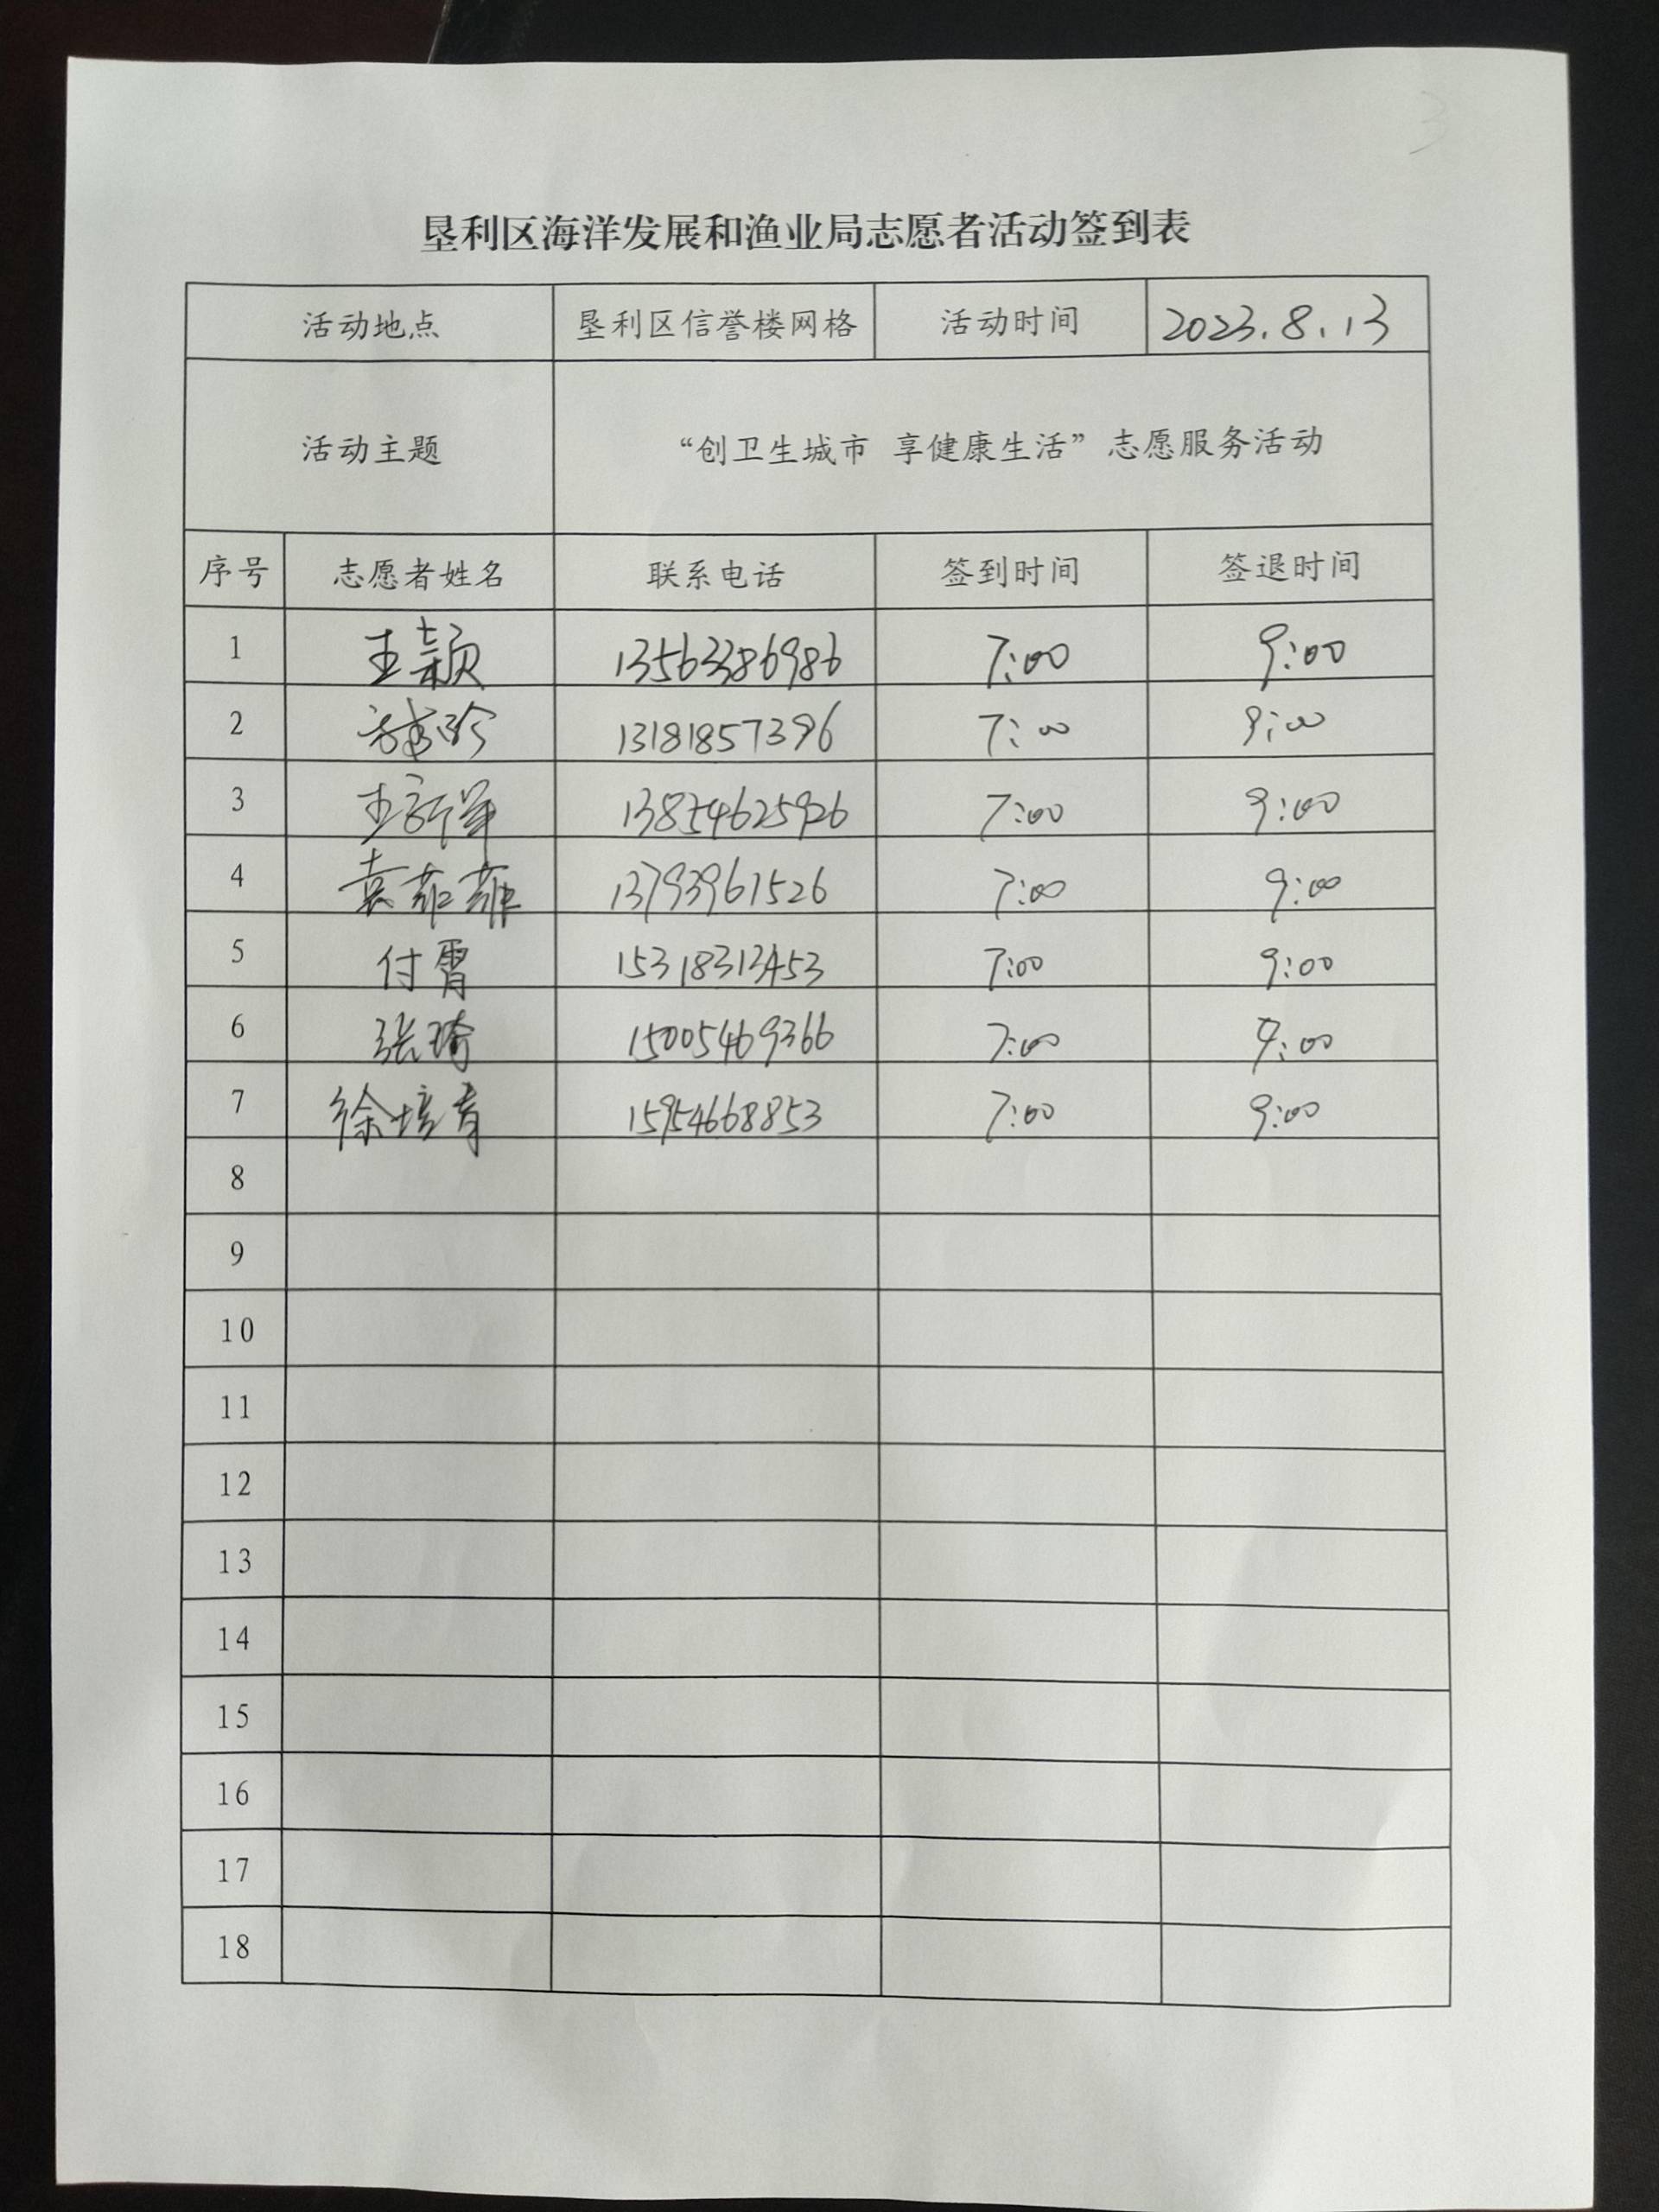 3
垦利区海洋发展和渔业局志愿者活动签到表
活动地点 垦利区信誉楼网格 活动时间 2023.8.13
活动主题 “创卫生城市 享健康生活”志愿服务活动
序号 志愿者姓名 联系电话 签到时间 签退时间
1 王颖 13563386986 7:00 9:00
2 13181857396 7:00 9:00
3 王新军 13854625926 7:00 9:00
4 袁菲菲 13793961526 7:00 9:00
5 付霄 15318313453 7:00 9:00
6 张琦 15005469366 7:00 9:00
7 徐培育 15954668853 7:00 9:00
8
9
10
11
12
13
14
15
16
17
18